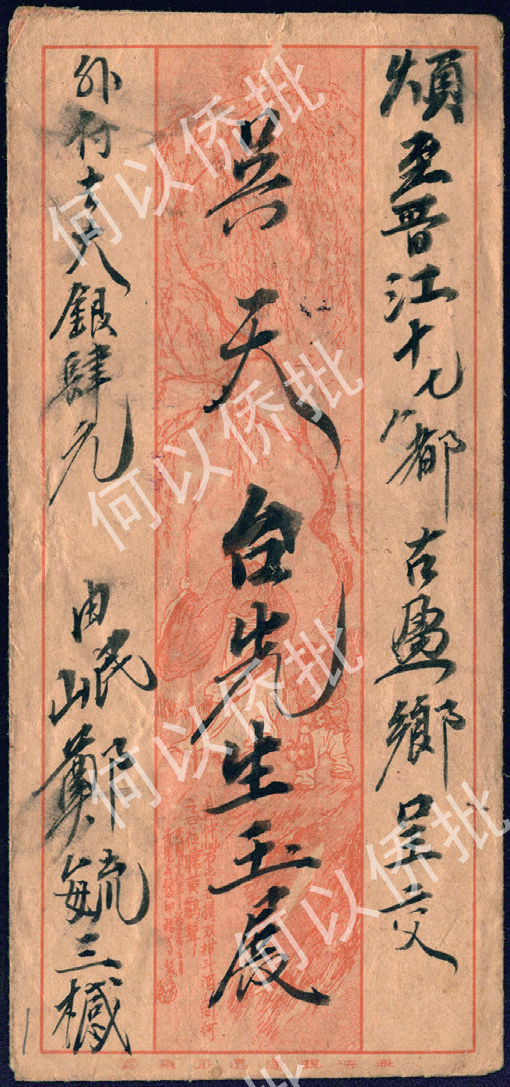 煩至晋江十七八都古盈鄉呈交
吳天台先生玉展
外付去大銀肆元
由岷鄭毓三椷
何以侨批
何以侨批
何以侨批
何以侨批